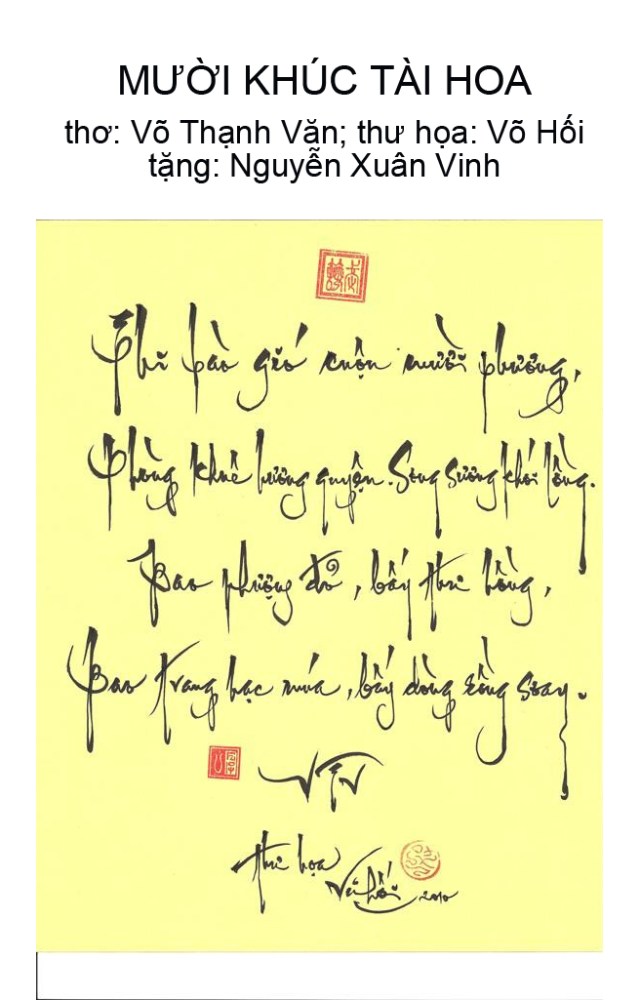 MƯỜI KHÚC TÀI HOA
thơ: Võ Thạnh Văn; thư họa: Võ Hối
tặng: Nguyễn Xuân Vinh
Phi bào gió cuộn mười phương,
Phòng khuê hương quyện. Song sương khói lồng.
Bao phượng đỏ, bấy thư hồng,
Bao trang hạc múa, bấy dòng rồng say.
VTV
thư họa
Võ Hối 2010